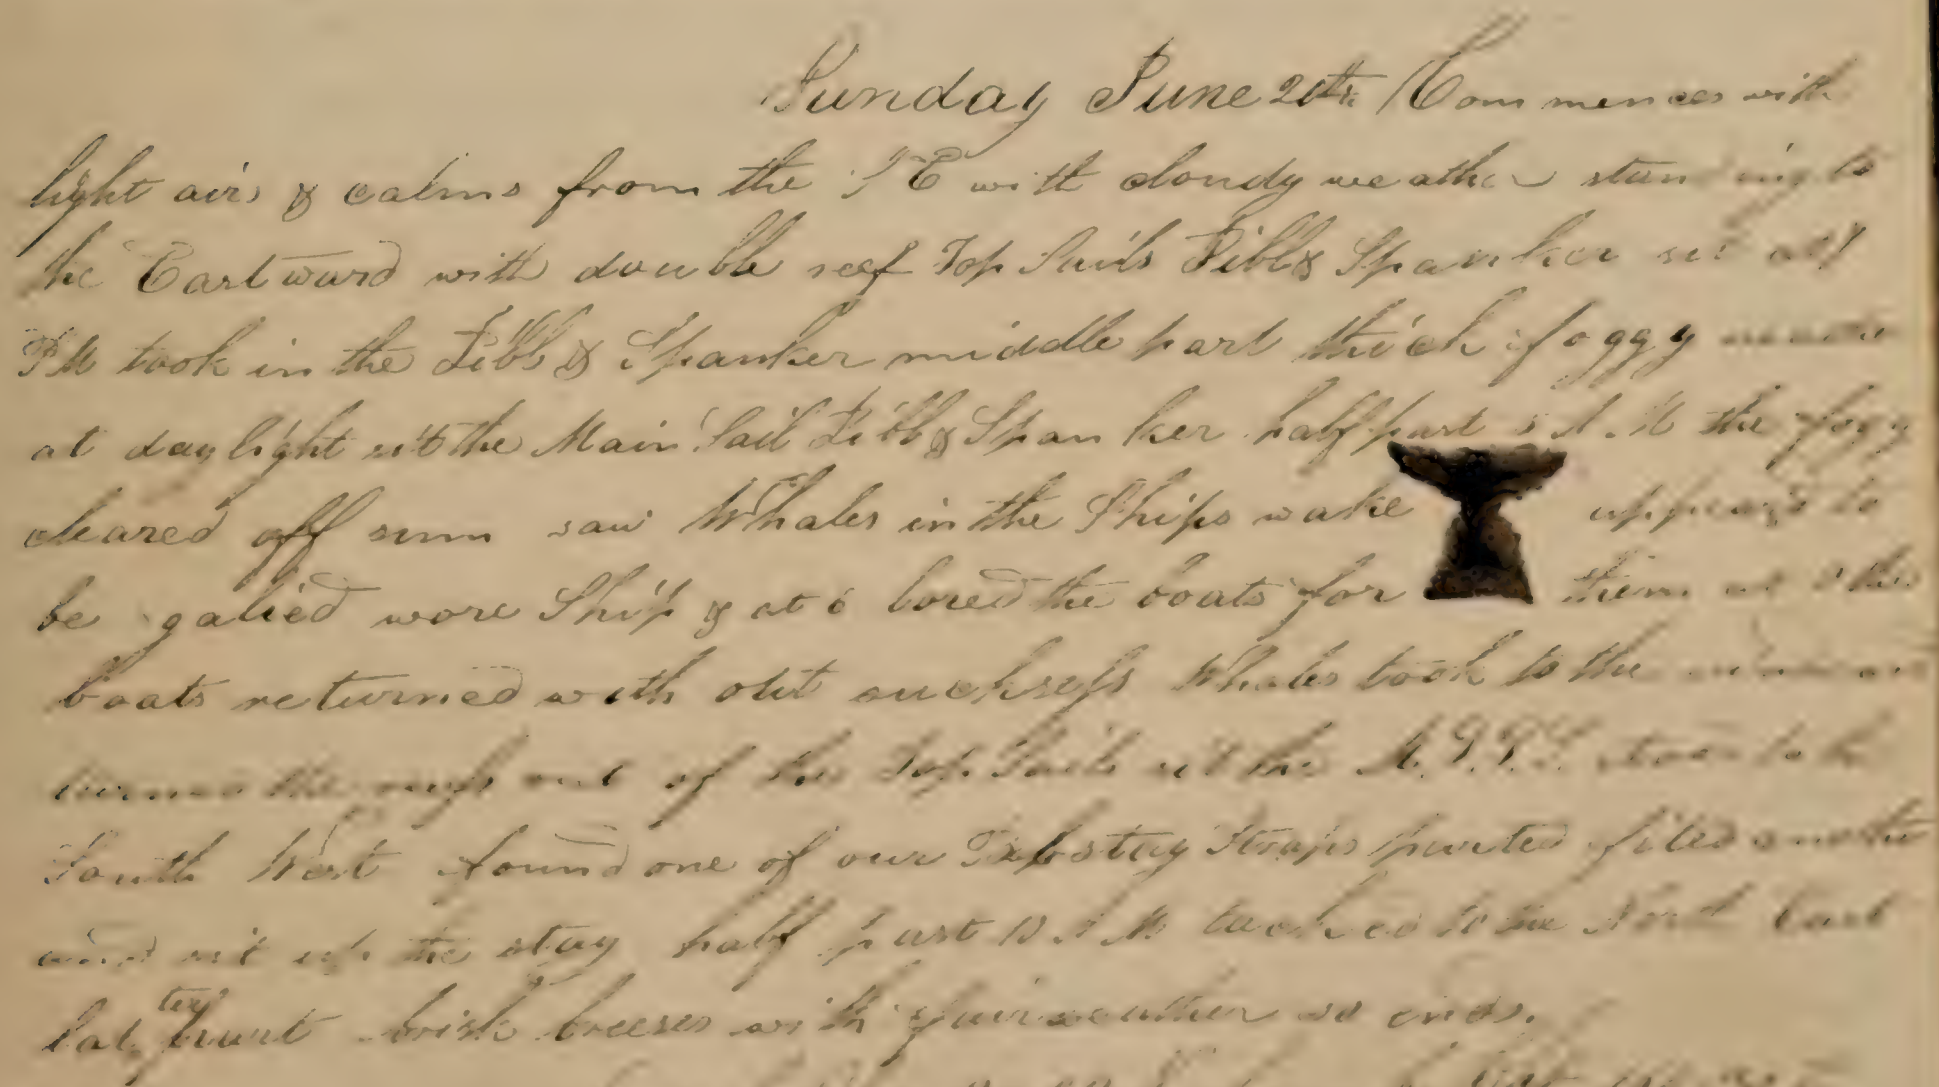 Sunday June 20th Commences with
light airs & calms from the S E with cloudy weather standing to
the Eastward with double reef Top Sails Jibb & Spanker set at
PM took in the Jibb & Spanker middle part thick foggy
at day light set the Main Sail Jibb & Spanker half past 5 A M the fogg
cleared off sum saw Whales in the Ships wake appeard to
be galied wore Ship & at 6 lored the boats for them at the
boats returned with out sucksess Whales took to the
turned the reefs out of the Top Sails set the stood to the
South West found one of our Bobstay Straps parted fited another
and set up the stay half past 10 A M tacked to the North East
latter part brisk breeses with fair weather so ends.